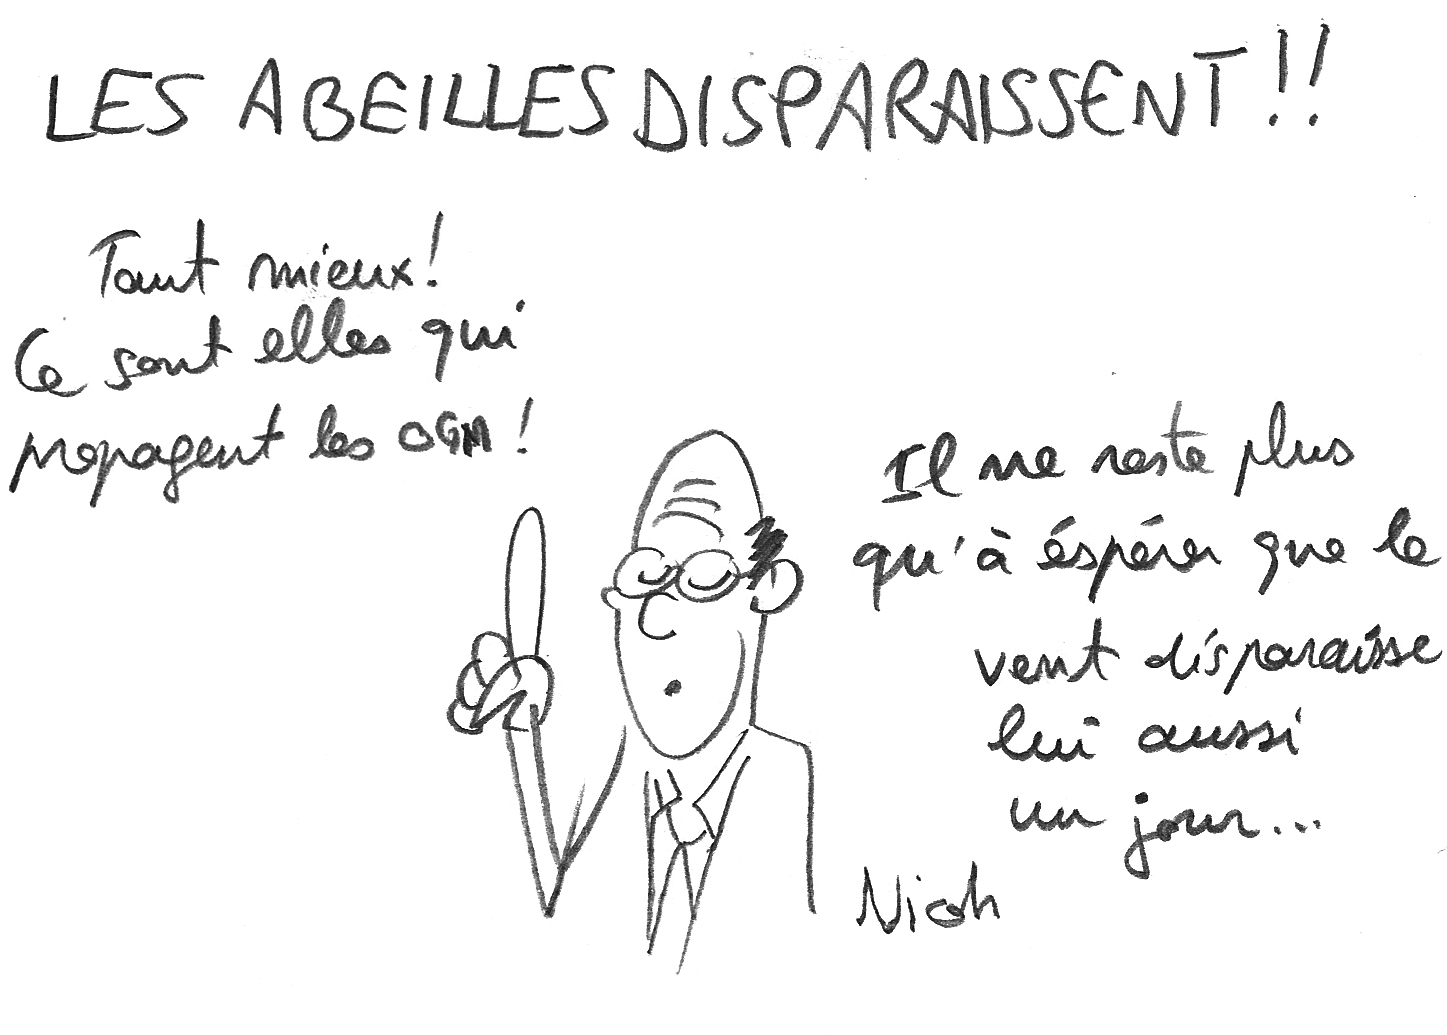 LES ABEILLES DISPARAISSENT!!
Tant mieux!
Ce sont elles qui
propagent les OGM!
Il ne reste plus
qu'à éspérer que le
vent disparaisse
lui aussi
un jour...
Nicoh